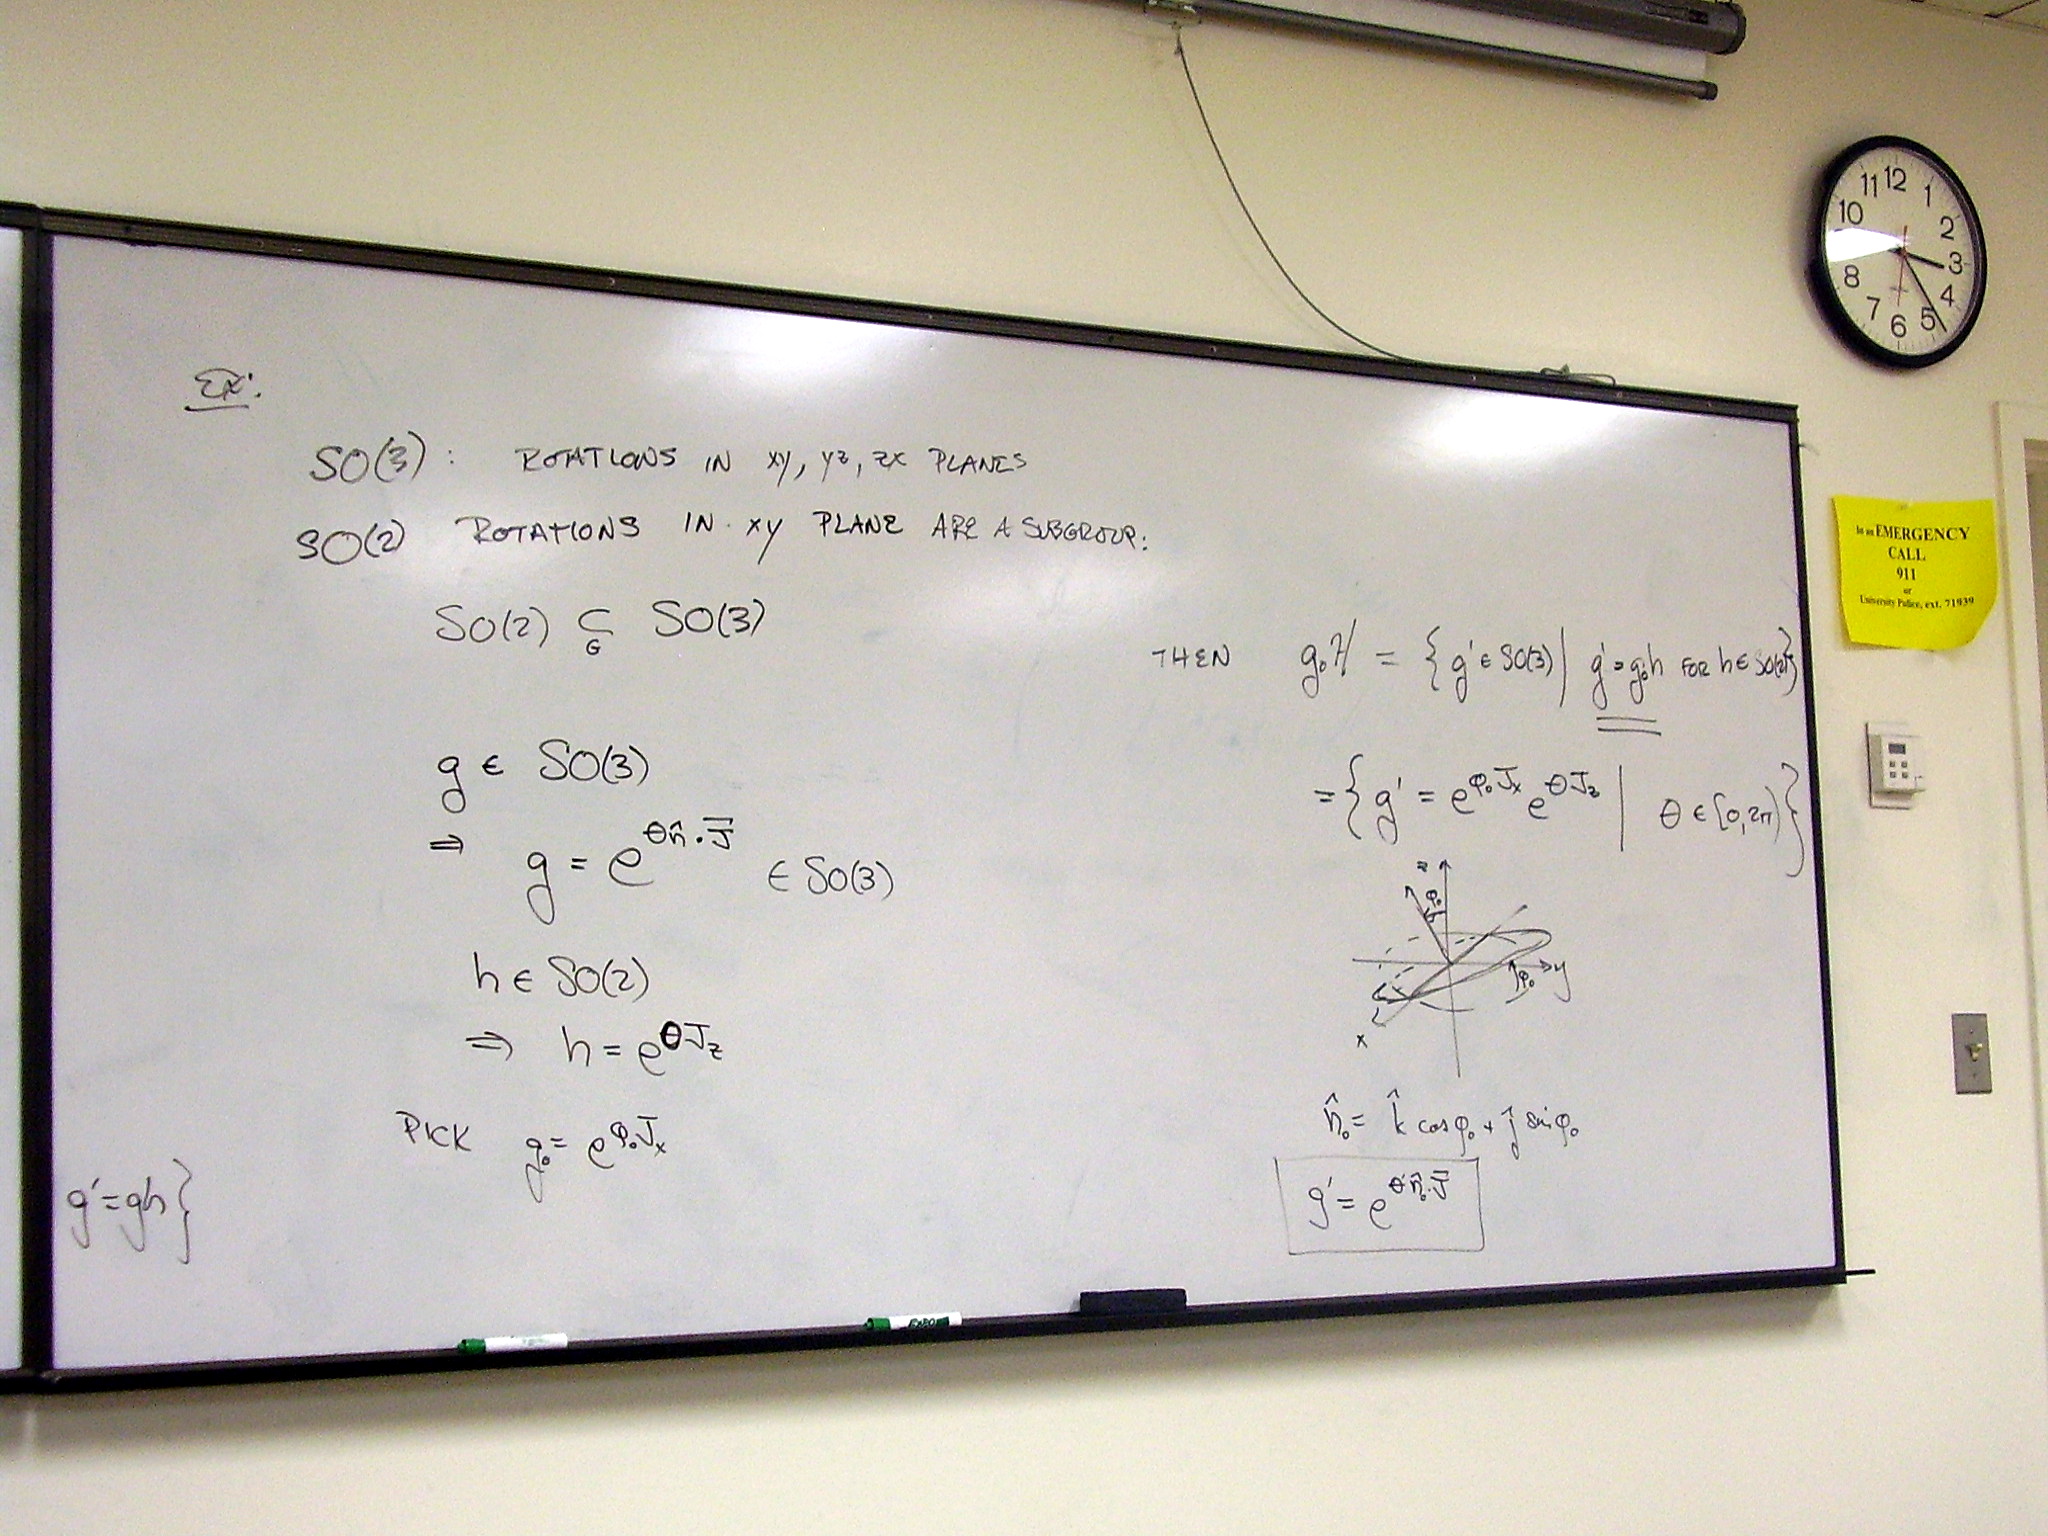 Ex:
SO(3): ROTATIONS IN xy, yz, zx PLANES
SO(2) ROTATIONS IN xy PLANE ARE A SUBGROUP:
SO(2) ⊂_G SO(3)
g ∈ SO(3)
⇒ g = e^{θn̂·J⃗} ∈ SO(3)
h ∈ SO(2)
⇒ h = e^{θJ_z}
PICK g₀ = e^{φ₀J_x}
g' = gh}
THEN g₀H = {g' ∈ SO(3) | g' = g₀h FOR h ∈ SO(2)}
= {g' = e^{φ₀J_x} e^{θJ_z} | θ ∈ [0, 2π)}
z
φ₀
y
φ₀
x
n̂₀ = k̂ cos φ₀ + ĵ sin φ₀
g' = e^{θ'n̂₀·J⃗}
12
1
2
3
4
5
6
7
8
10
11
In an EMERGENCY
CALL
911
or
University Police, ext. 71939
EXPO